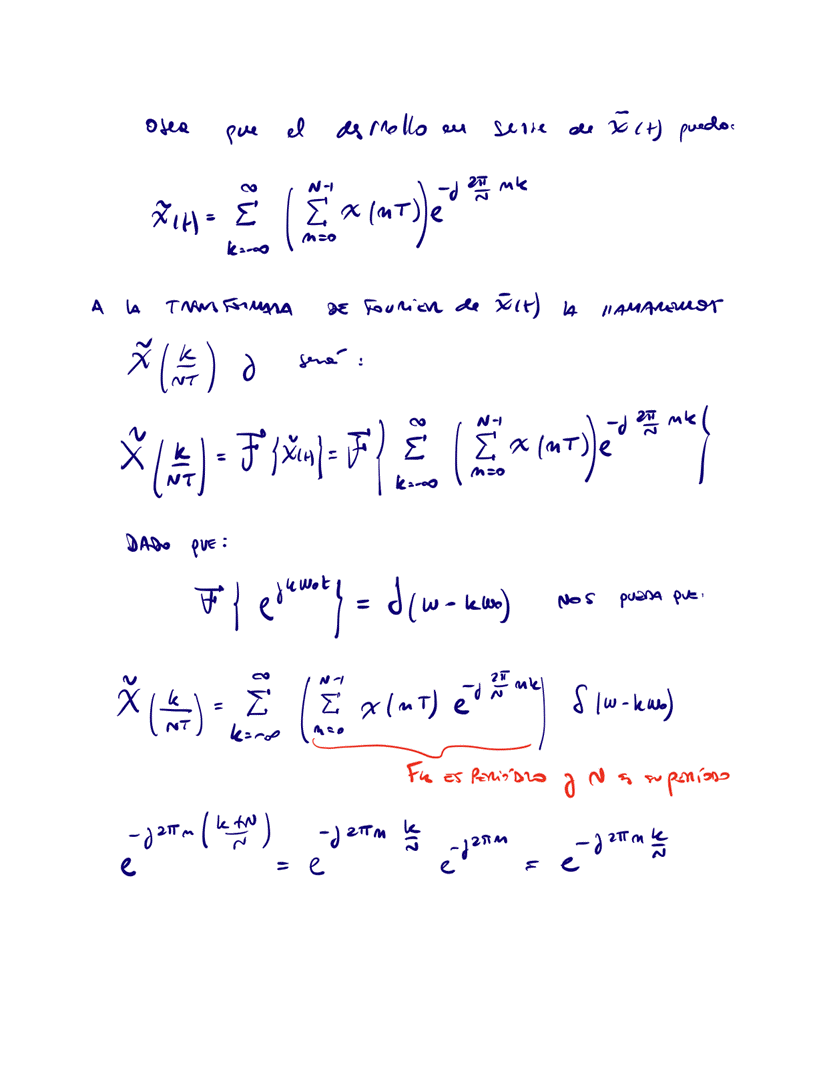 Osea que el desrrollo en serie de x̃(t) queda:
x̃(t) = Σ_{k=-∞}^{∞} ( Σ_{n=0}^{N-1} x(nT) ) e^{-j 2π/N nk}
A LA TRANSFORMADA DE FOURIER de x̃(t) LA LLAMAREMOS
X̃(k/NT) y será:
X̃(k/NT) = F{x̃(t)} = F{ Σ_{k=-∞}^{∞} ( Σ_{n=0}^{N-1} x(nT) ) e^{-j 2π/N nk} }
DADO QUE:
F{ e^{jkω₀t} } = δ(ω - kω₀) NOS QUEDA QUE:
X̃(k/NT) = Σ_{k=-∞}^{∞} ( Σ_{n=0}^{N-1} x(nT) e^{-j 2π/N nk} ) δ(ω - kω₀)
ES PERIÓDICO y N es su PERÍODO
e^{-j2πn((k+N)/N)} = e^{-j2πn k/N} e^{-j2πn} = e^{-j2πn k/N}